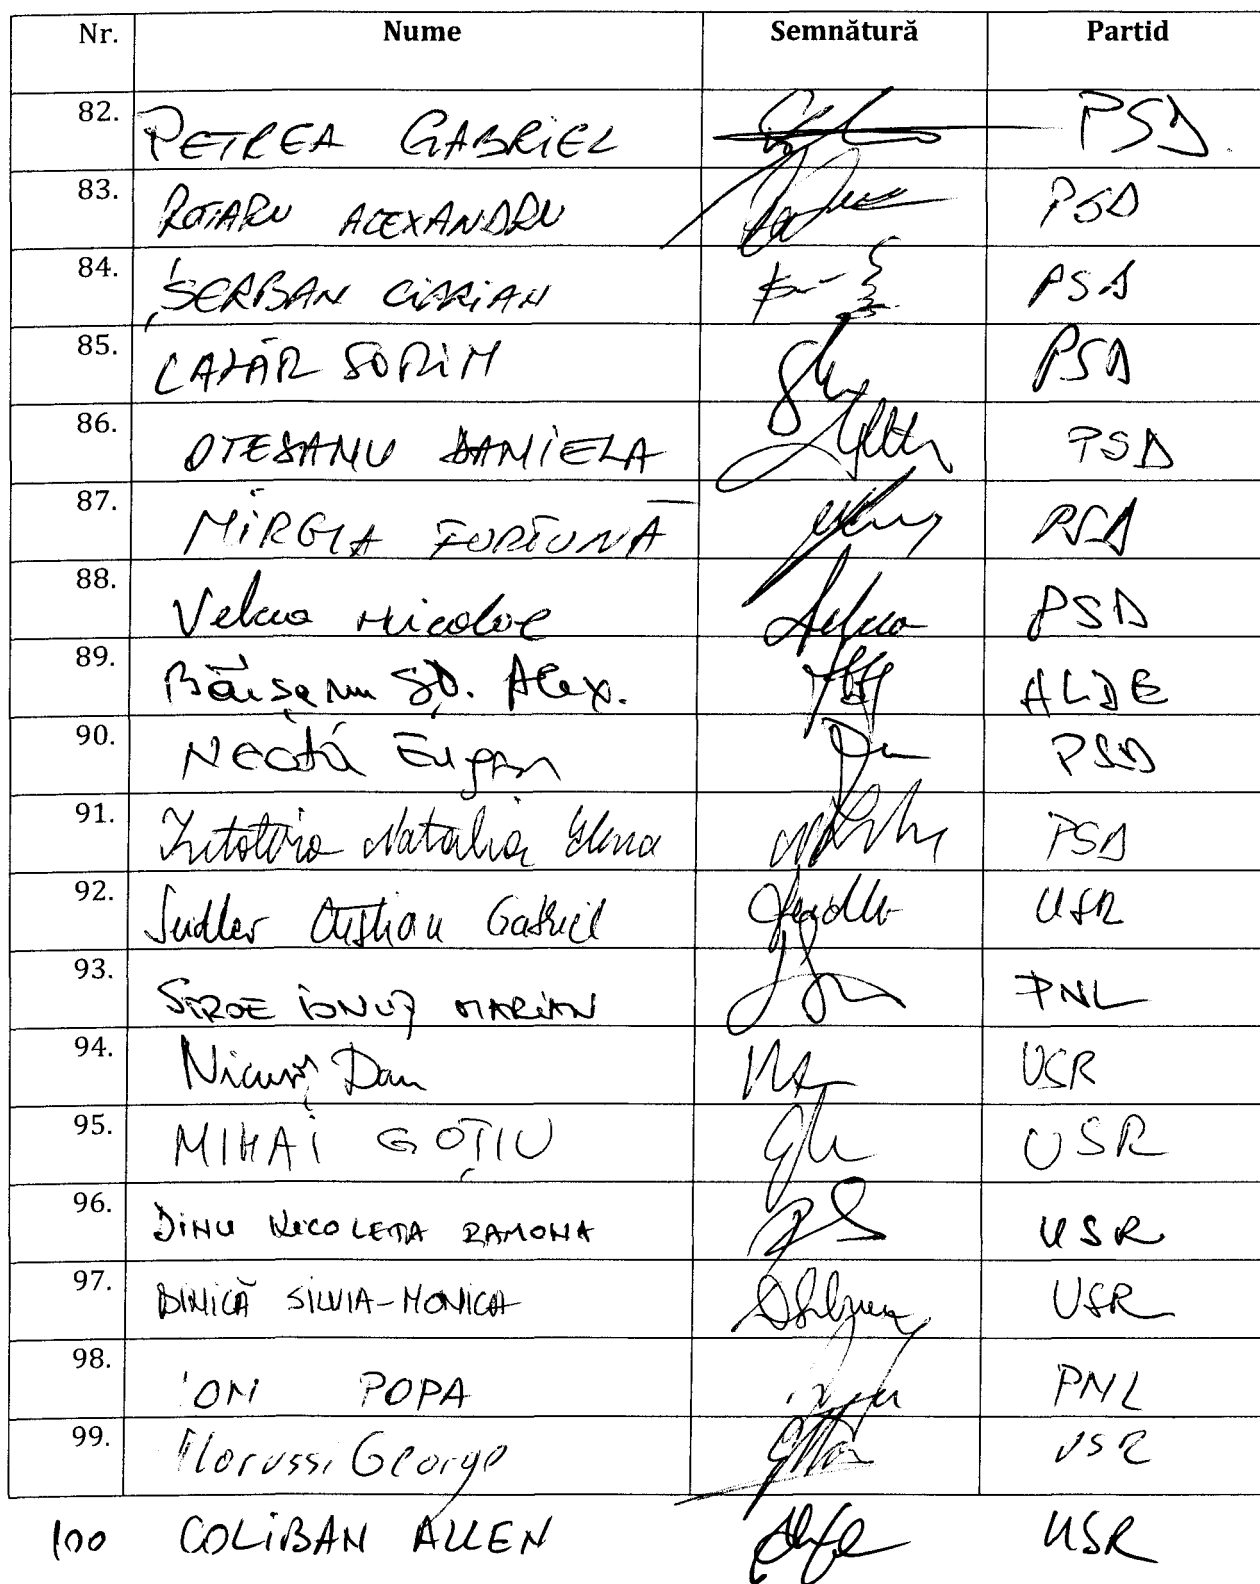 Nr. Nume Semnătură Partid
82. PETREA GABRIEL PSD
83. ROTARU ALEXANDRU PSD
84. ȘERBAN CIPRIAN PSD
85. LAZĂR SORIN PSD
86. OTESANU DANIELA PSD
87. MIRCEA FORTUNĂ PSD
88. Velcea Nicolae PSD
89. Băișanu Șt. Alex. ALDE
90. Neață Eugen PSD
91. Intotero Natalia Elena PSD
92. Seidler Cristian Gabriel USR
93. STROE IONUȚ MARIAN PNL
94. Nicușor Dan USR
95. MIHAI GOȚIU USR
96. DINU NICOLETA RAMONA USR
97. DINICĂ SILVIA-MONICA USR
98. ION POPA PNL
99. George USR
100 COLIBAN ALLEN USR